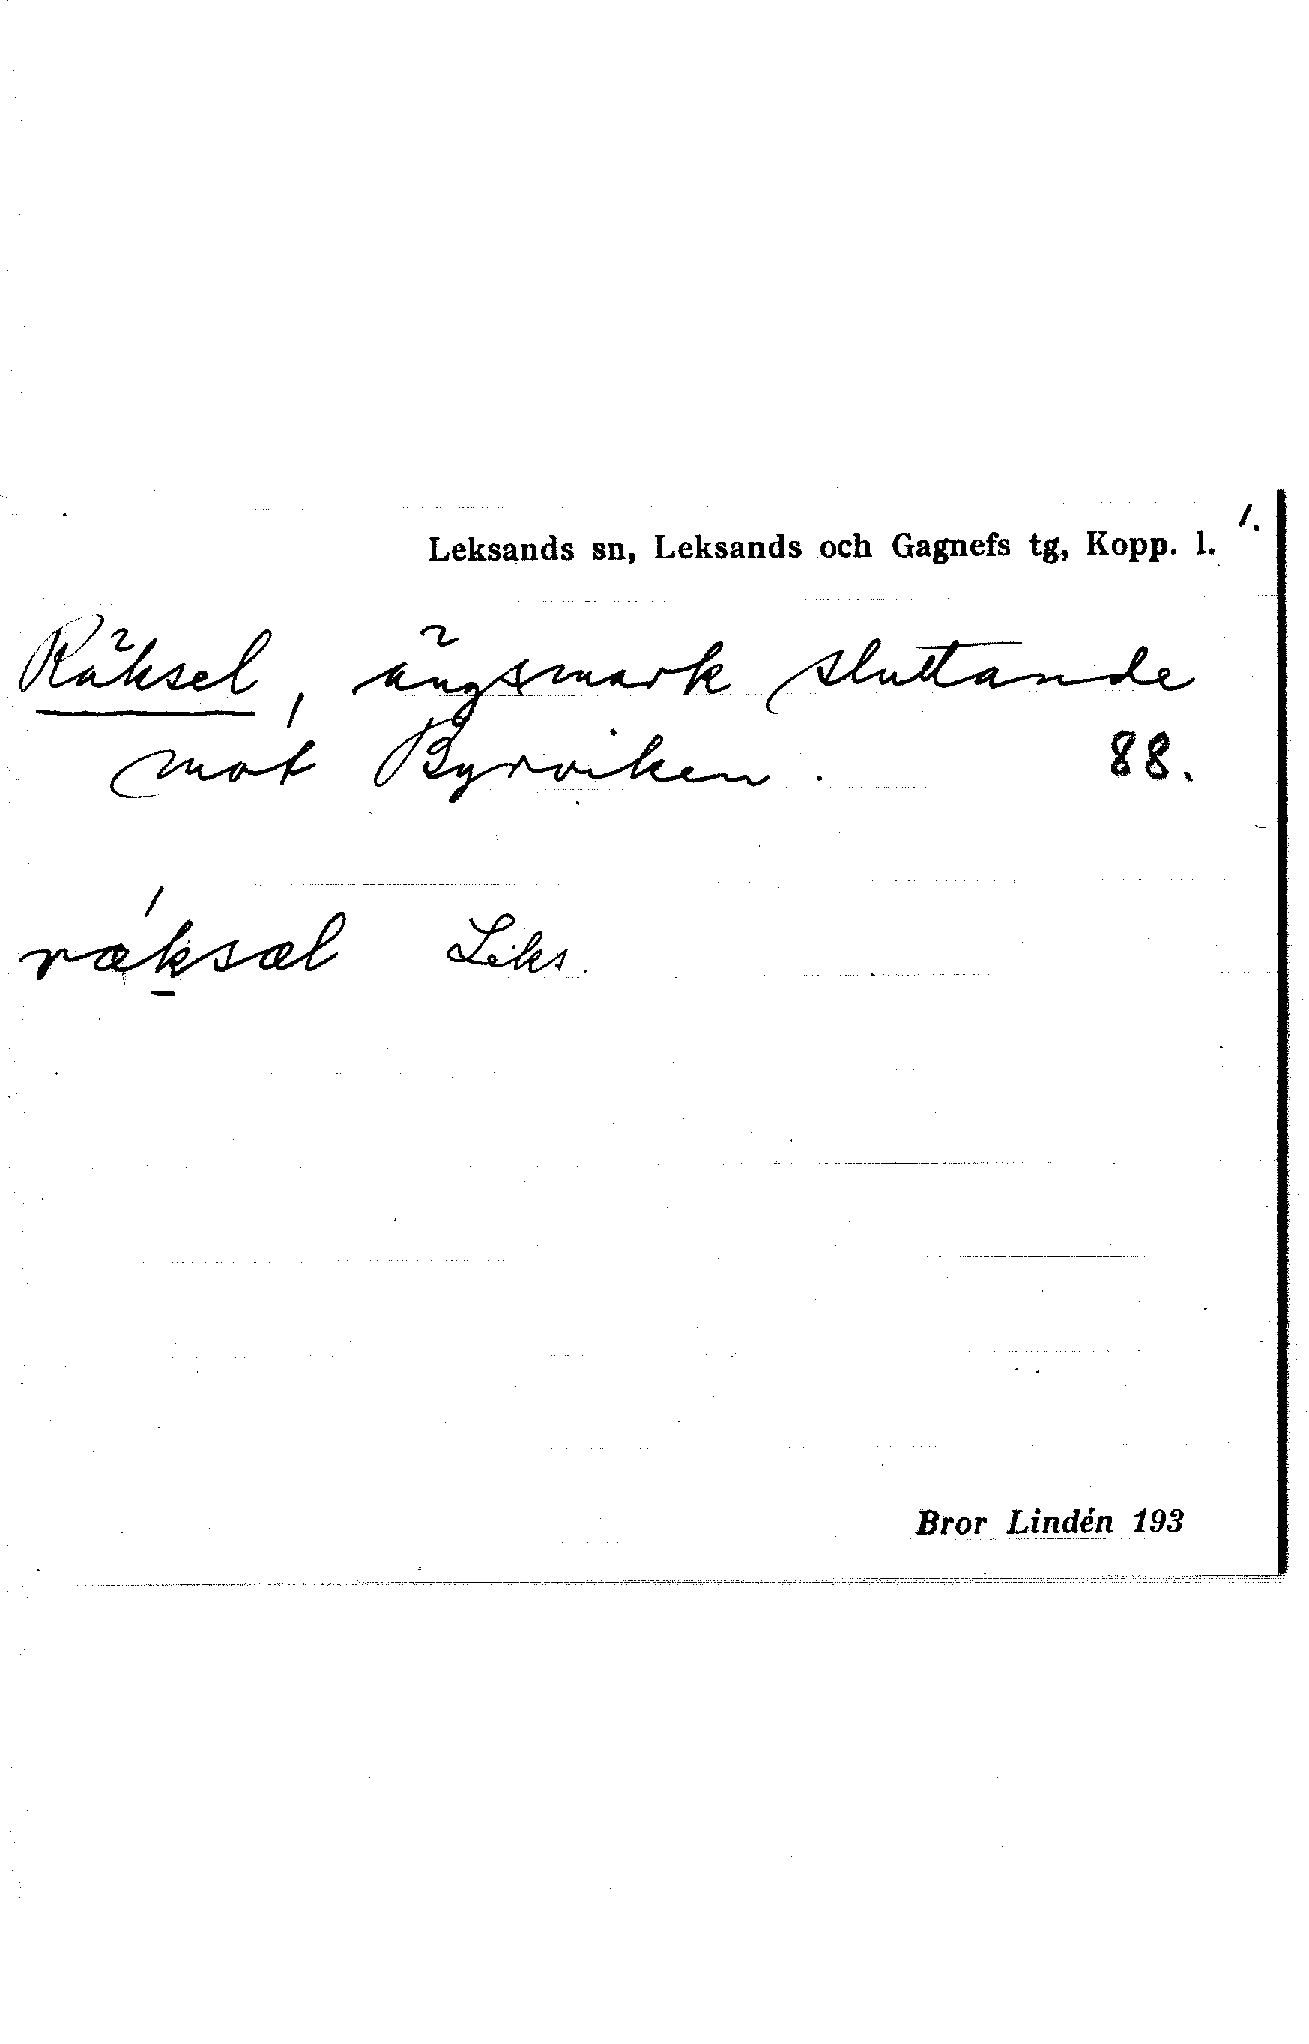 1.
Leksands sn, Leksands och Gagnefs tg, Kopp. l.
Räksel, ängsmark sluttande
mot Byrviken. 88.
rǽksæl Leks.
Bror Lindén 193